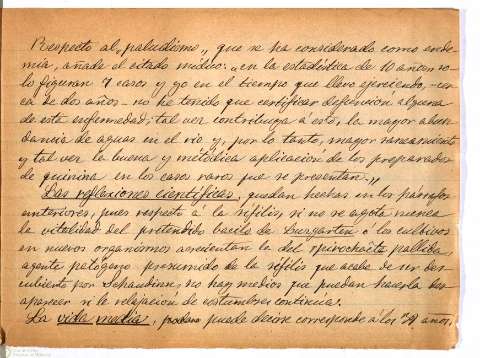 Respecto al „paludismo„ que se ha considerado como ende-
mia, añade el citado médico: „en la estadística de 10 años so-
lo figuran 7 casos y yo en el tiempo que llevo ejerciendo -cer-
ca de dos años- no he tenido que certificar defunción alguna
de esta enfermedad; tal vez contribuya a ésto, la mayor abun-
dancia de aguas en el río y, por lo tanto, mayor saneamiento
y tal vez la buena y metódica aplicación de los preparados
de quinina en los casos raros que se presentan.„
Las reflexiones científicas, quedan hechas en los párrafos
anteriores, pues respecto á la sífilis, si no se agota nunca
la vitalidad del pretendido bacilo de Lusgarten ó los cultivos
en nuevos organismos acrecientan la del spirochaeta pallida
agente patógeno presumido de la sífilis que acaba de ser des-
cubierto por Schaudinn; no hay medios que puedan hacerla des-
aparecer si la relajación de costumbres continúa.
La vida media, puede decirse corresponde a los años,